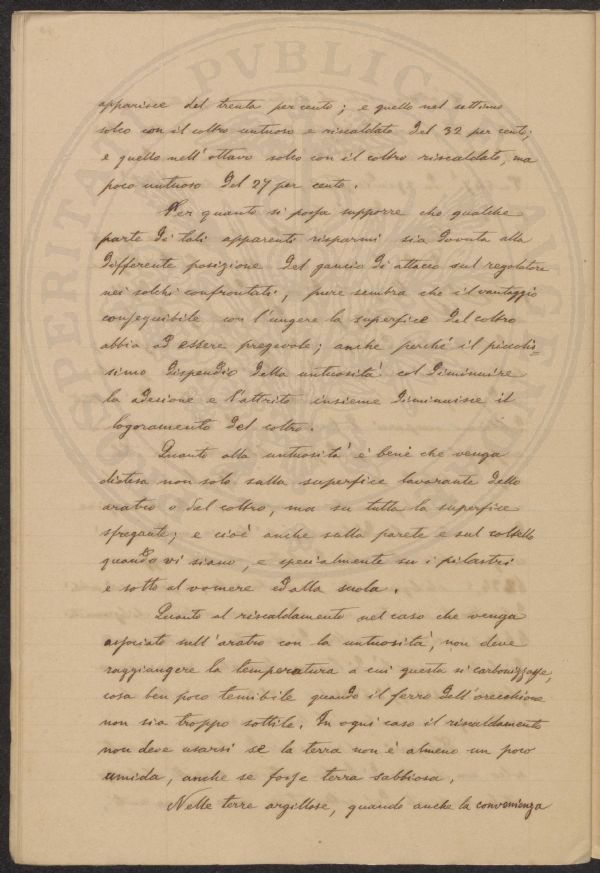 apparisce del trenta per cento; e quello nel settimo
solco con il coltro untuoso e riscaldato del 32 per cento;
e quello nell'ottavo solco con il coltro riscaldato, ma
poco untuoso del 27 per cento.
Per quanto si possa supporre che qualche
parte di tali apparenti risparmi sia dovuta alla
differente posizione del gancio di attacco sul regolatore
nei solchi confrontati, pure sembra che il vantaggio
conseguibile con l'ungere la superfice del coltro
abbia ad essere pregevole; anche perché il piccolis=
simo dispendio della untuosità col diminuire
la adesione e l'attrito insieme diminuisce il
logoramento del coltro.
Quanto alla untuosità è bene che venga
distesa non solo sulla superfice lavorante dello
aratro o del coltro, ma su tutta la superfice
sfregante; e cioè anche sulla parete e sul coltello
quando vi siano, e specialmente su i pilastri
e sotto al vomere ed alla suola.
Quanto al riscaldamento nel caso che venga
associato nell'aratro con la untuosità, non deve
raggiungere la temperatura a cui questa si carbonizzasse,
cosa ben poco temibile quando il ferro dell'orecchione
non sia troppo sottile. In ogni caso il riscaldamento
non deve usarsi se la terra non è almeno un poco
umida, anche se fosse terra sabbiosa.
Nelle terre argillose, quando anche la convenienza
PVBLICA